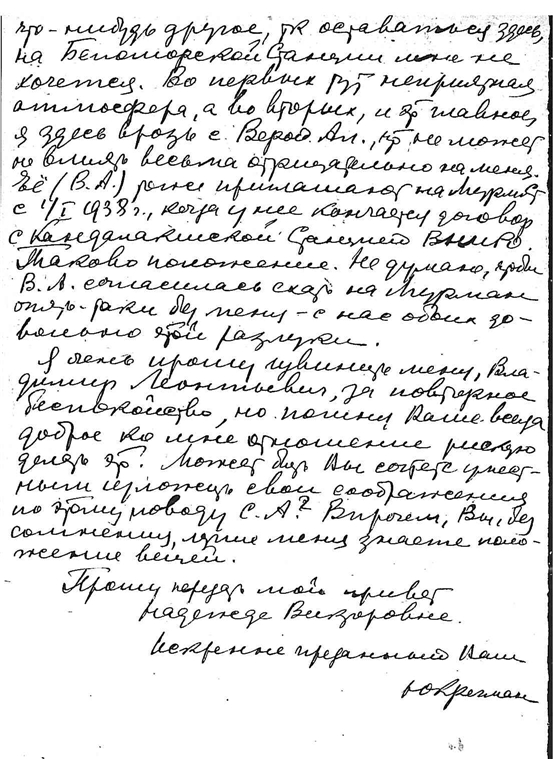 что-нибудь другое, тк оставаться здесь,
на Беломорской Станции мне не
хочется. Во первых тут неприятная
атмосфера, а во вторых, и это главное
я здесь врозь с Верой Ал., что не может
не влиять весьма отрицательно на меня.
Её (В.А.) тоже приглашают на Мурман
с 1/I 1938 г., когда у нее кончается договор
с Кандалакшской Станцией ВНИРО
Таково положение. Не думаю, чтобы
В.А. согласилась ехать на Мурман
опять-таки без меня – с нас обоих до-
вольно этой разлуки.
Я очень прошу извинить меня, Вла-
димир Леонтьевич, за повторное
беспокойство, но помня Ваше всегда
доброе ко мне отношение рискую
делать это. Может быть Вы сочтете умест-
ным изложить свои соображения
по этому поводу С.А? Впрочем, Вы, без
сомнения, лучше меня знаете поло-
жение вещей.
Прошу передать мой привет
Надежде Викторовне.
Искренне преданный Ваш